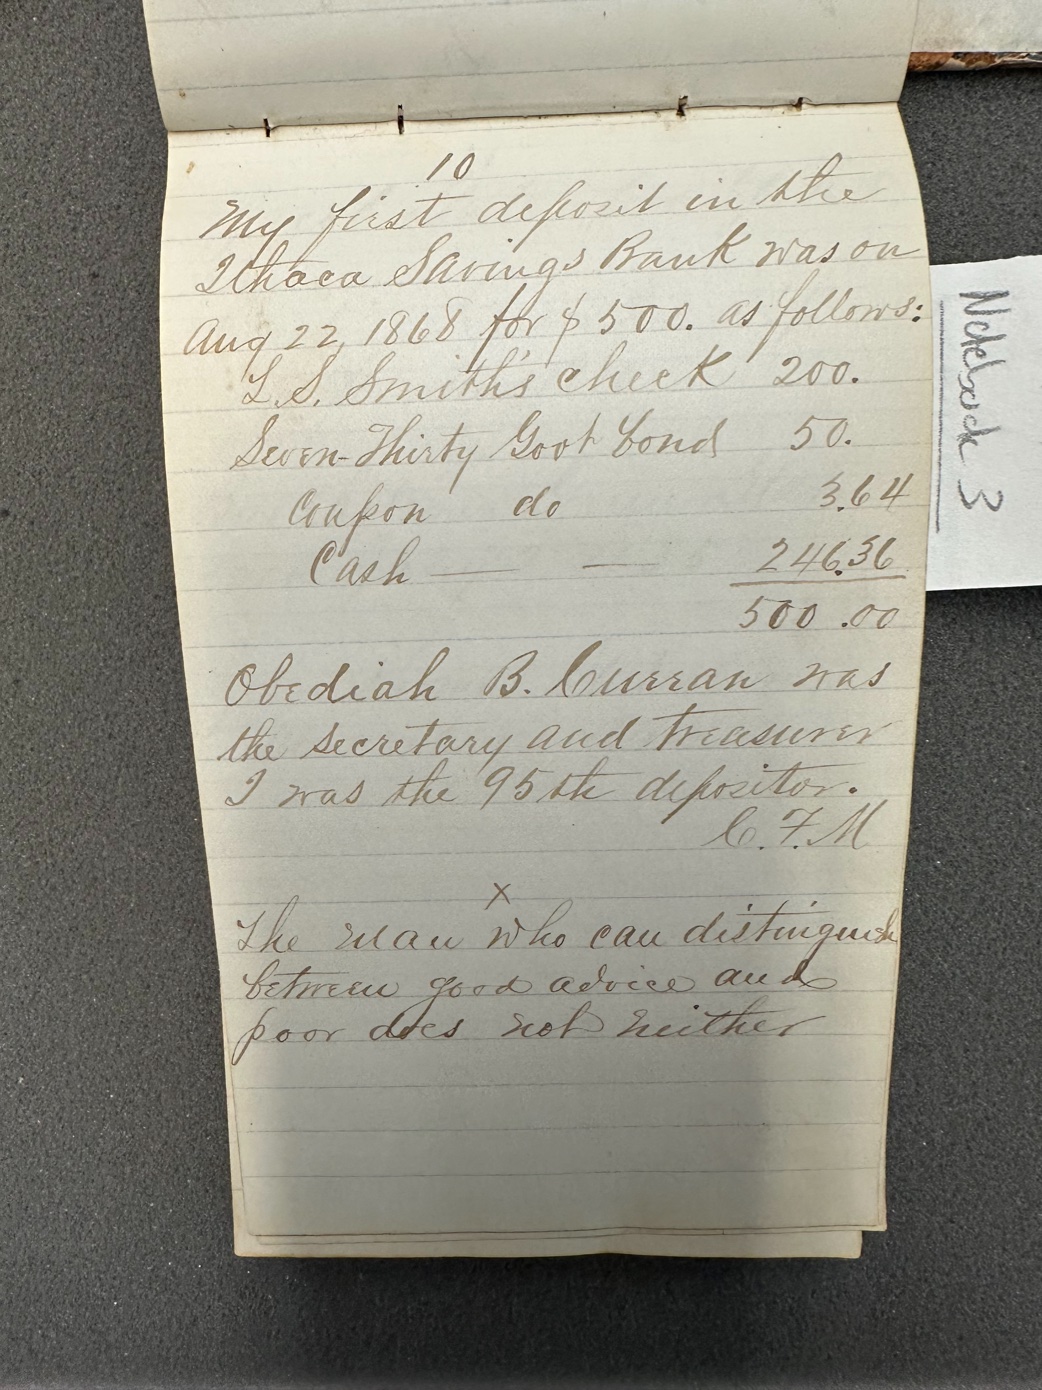 10
My first deposit in the
Ithaca Savings Bank was on
Aug 22, 1868 for $500. as follows:
L. S. Smith's check 200.
Seven-Thirty Govt bond 50.
Coupon do 3.64
Cash — — 246.36
500.00
Obediah B. Curran was
the secretary and treasurer
I was the 95th depositor.
C. F. M
x
The man who can distinguish
between good advice and
poor does not neither
Notebook 3